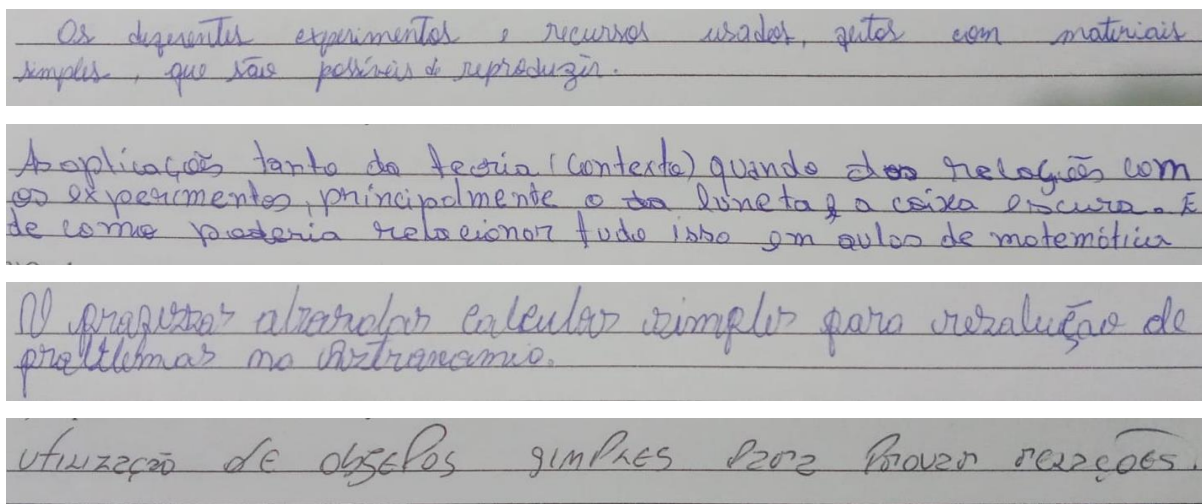 Os diferentes experimentos e recursos usados, feitos com materiais
simples, que são possíveis de reproduzir.
As aplicações tanto da teoria (contexto) quando das relações com
os experimentos, principalmente o da luneta e a caixa escura. E
de como poderia relacionar tudo isso em aulas de matemática
O professor abordar calculos simples para resolução de
problemas na Astronomia.
utilização de objetos simples para provar relações.